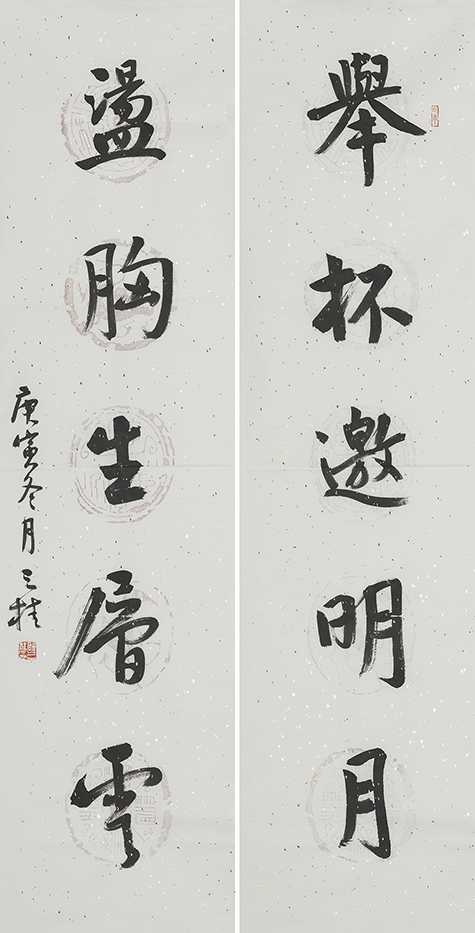 舉杯邀明月
盪胸生層雲
庚寅冬月三桂